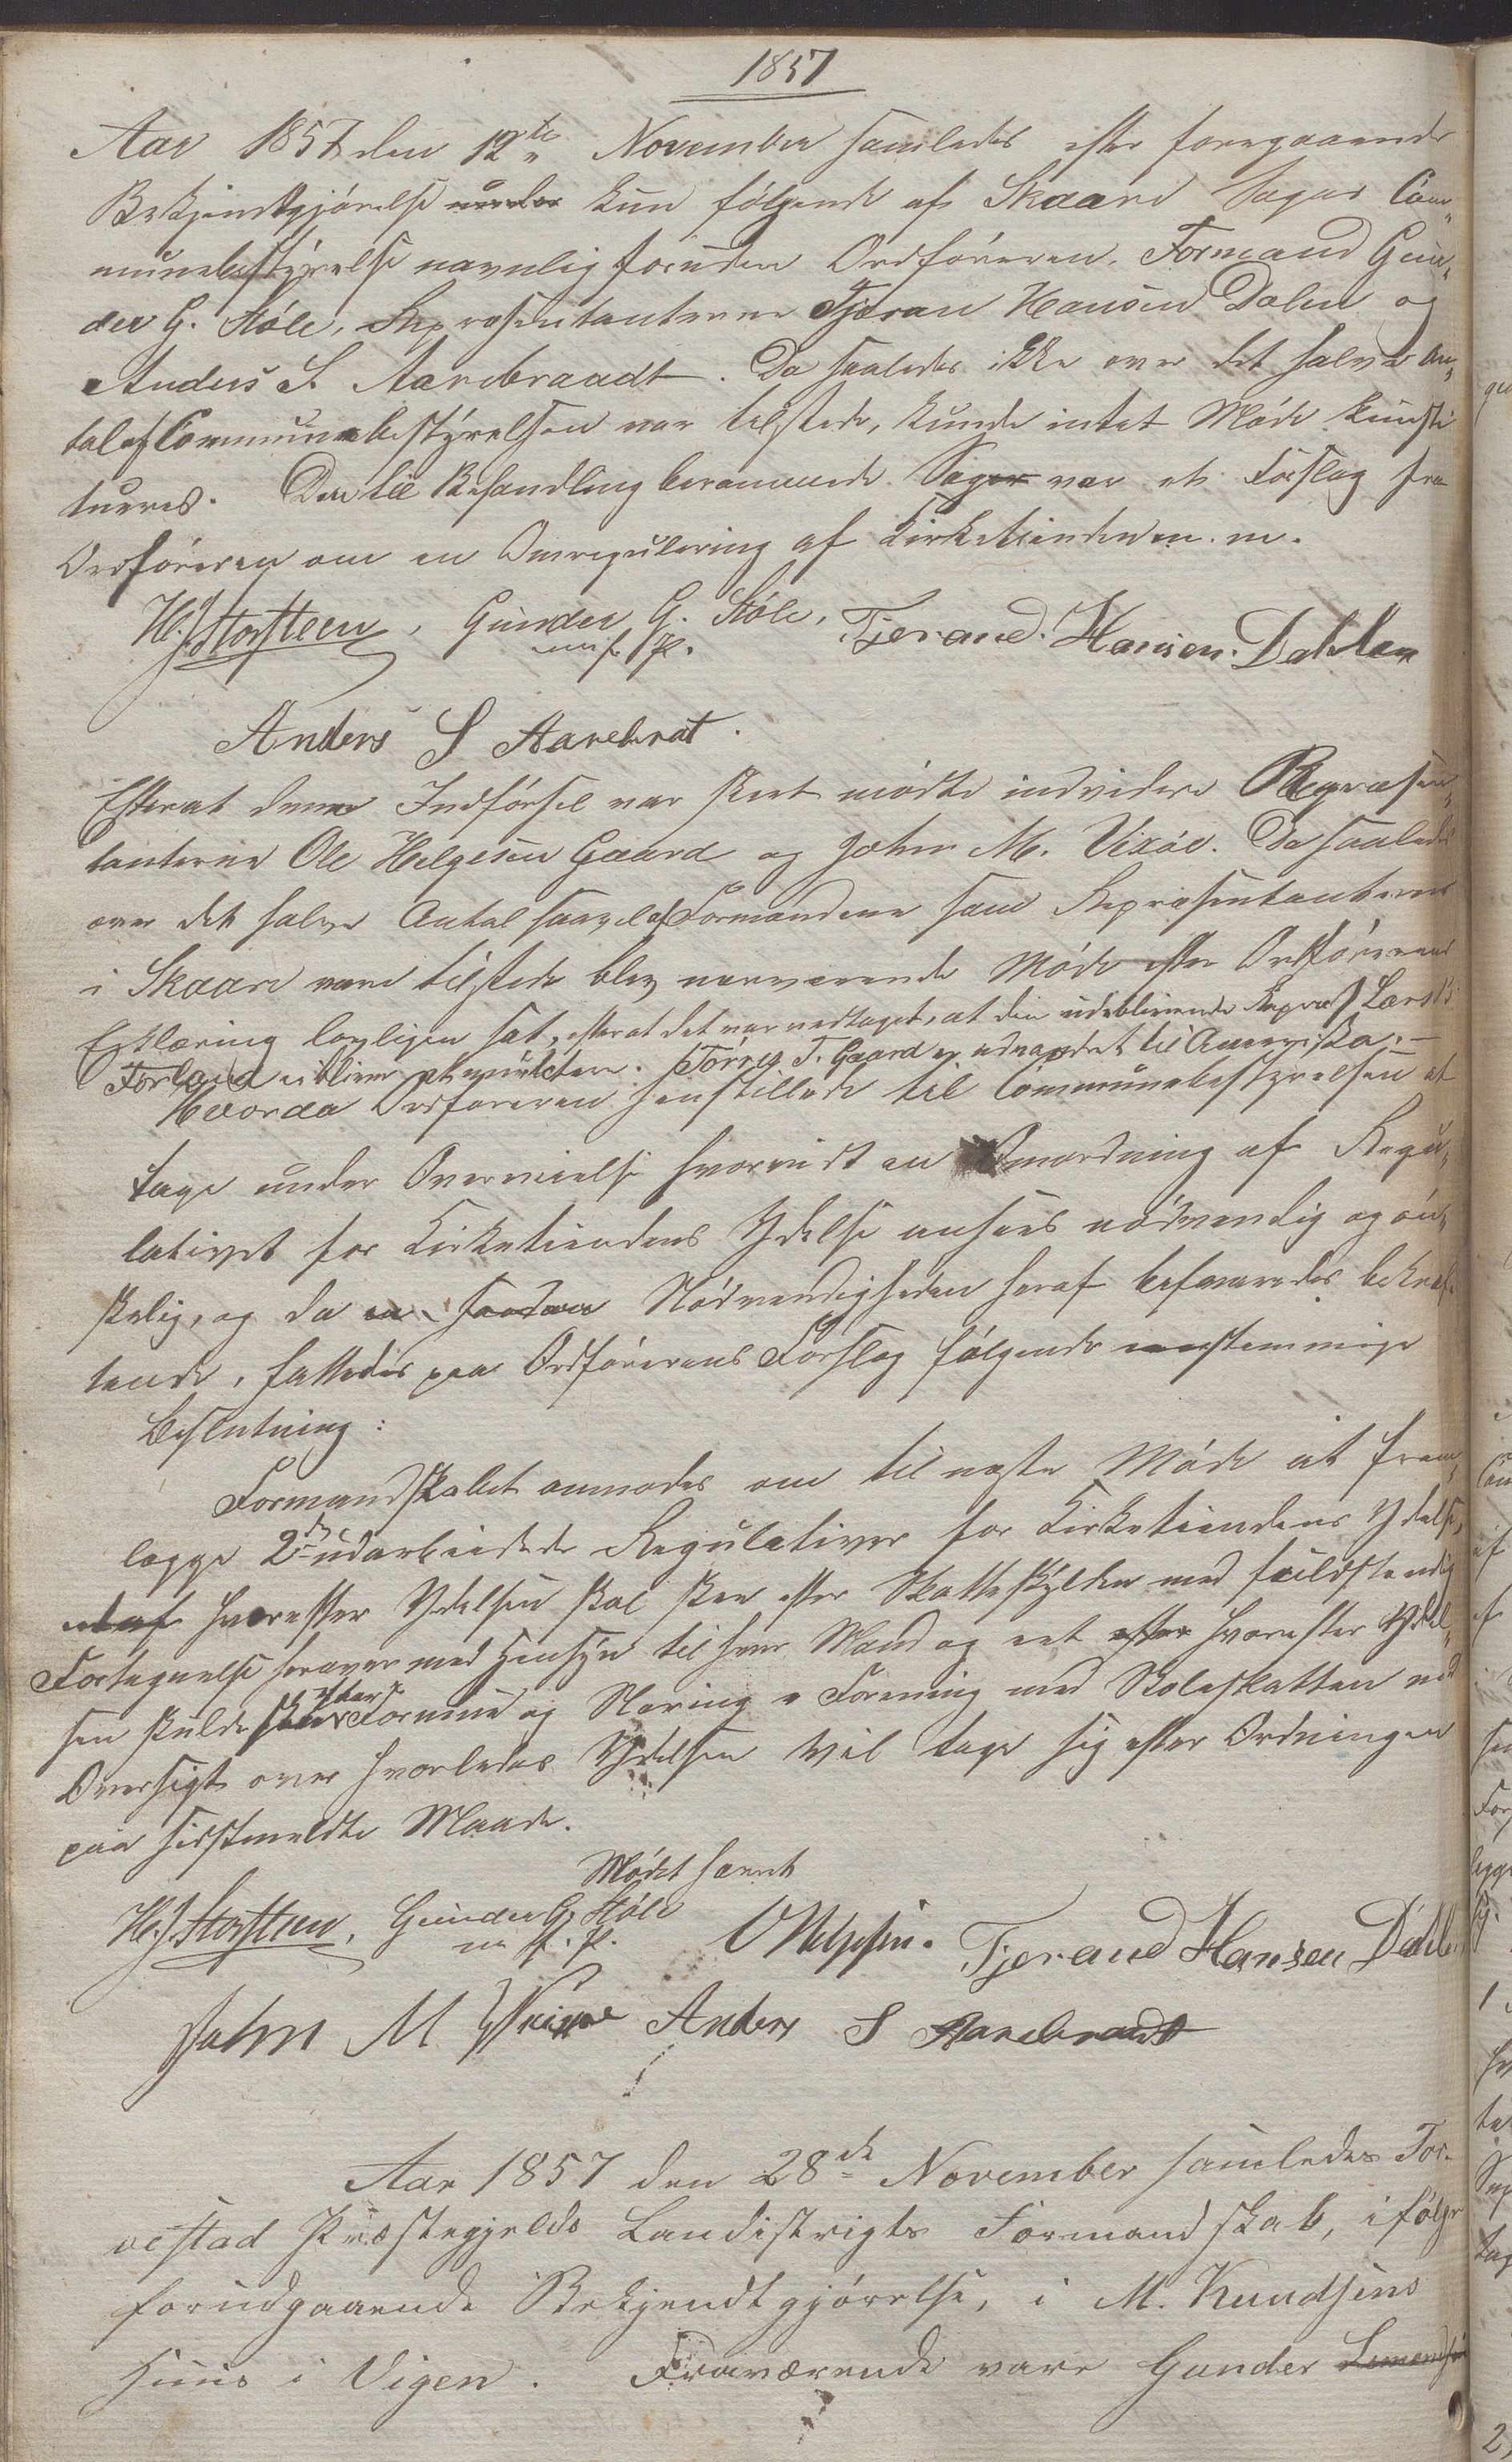 1857
Aar 1857 den 12te November samledes efter foregaaende
Bekjendtgjørelse under kun følgende af Skaare Sogns Com„
munebestyrelse navnlig foruden Ordføreren, Formand Gun„
der G. Støle, Repræsentanterne Tjeran Hansen Dalen og
Anders S. Aarebraadt. Da saaledes ikke over det halve An„
tal af Communebestyrelsen var tilstede, kunde intet Møde konsti
tueres. Den til Behandling berammede Sager var et Forslag fra
Ordføreren om en Omregulering af Kirketienden m. m.
H. J. Storsteen, Gunder G. Støle, Tjerand. Hansen. Dahlen
m. f. P.
Anders S Aarebrat.
Efterat denne Indførsel var skeet mødte indvidere Repræsen„
tanterne Ole Helgesen Gaard og John M. Vixøe. Da saaledes
over det halve Antal saavel af Formændene som Repræsentanterne
i Skaare vare tilstede blev nærværende Møde efter Ordførerens
Erklæring lovligen sat, efterat det var vedtaget, at den udeblivende Repræs. Lars
Førland ei bliver at mulctere. Tørres T. Gaard er udvandret til Amerika.—
Hvorda Ordføreren henstillede til Communebestyrelsen at
tage under Overveielse hvorvidt en Omordning af Regu„
lativet for Kirketiendens Ydelse ansees nødvendig og øn„
skelig, og da en saadan Nødvendigheden heraf befandtes bekræf
tende, fattedes paa Ordførerens Forslag følgende eenstemmige
Beslutning:
Formandskabet anmodes om til næste Møde at frem„
lægge 2de udarbeidede Regulativer for Kirketiendens Ydelse,
et af hvorefter Ydelsen skal skee efter Skatteskylden med fuldstændig
Fortegnelse herover med Hensyn til hver Mand og eet efter hvorefter Ydel„
sen skulde skee efter Formue og Næring i Forening med Skoleskatten med
Oversigt over hvorledes Ydelsen vil tage sig efter Ordningen
paa sidstmeldte Maade.
Mødet hævet
H. J. Storsteen, Gunder G. Støle
m. f. P. O Helgesen. Tjerand Hansen Dahlen
John M Vixøe Anders S Aarebraadt
Aar 1857 den 28de November samledes Tor„
vestad Præstegjelds Landistrigts Formandskab, ifølge
forudgaaende Bekjendtgjørelse, i M. Knudsens
Huus i Vigen. Fraværende vare Gunder